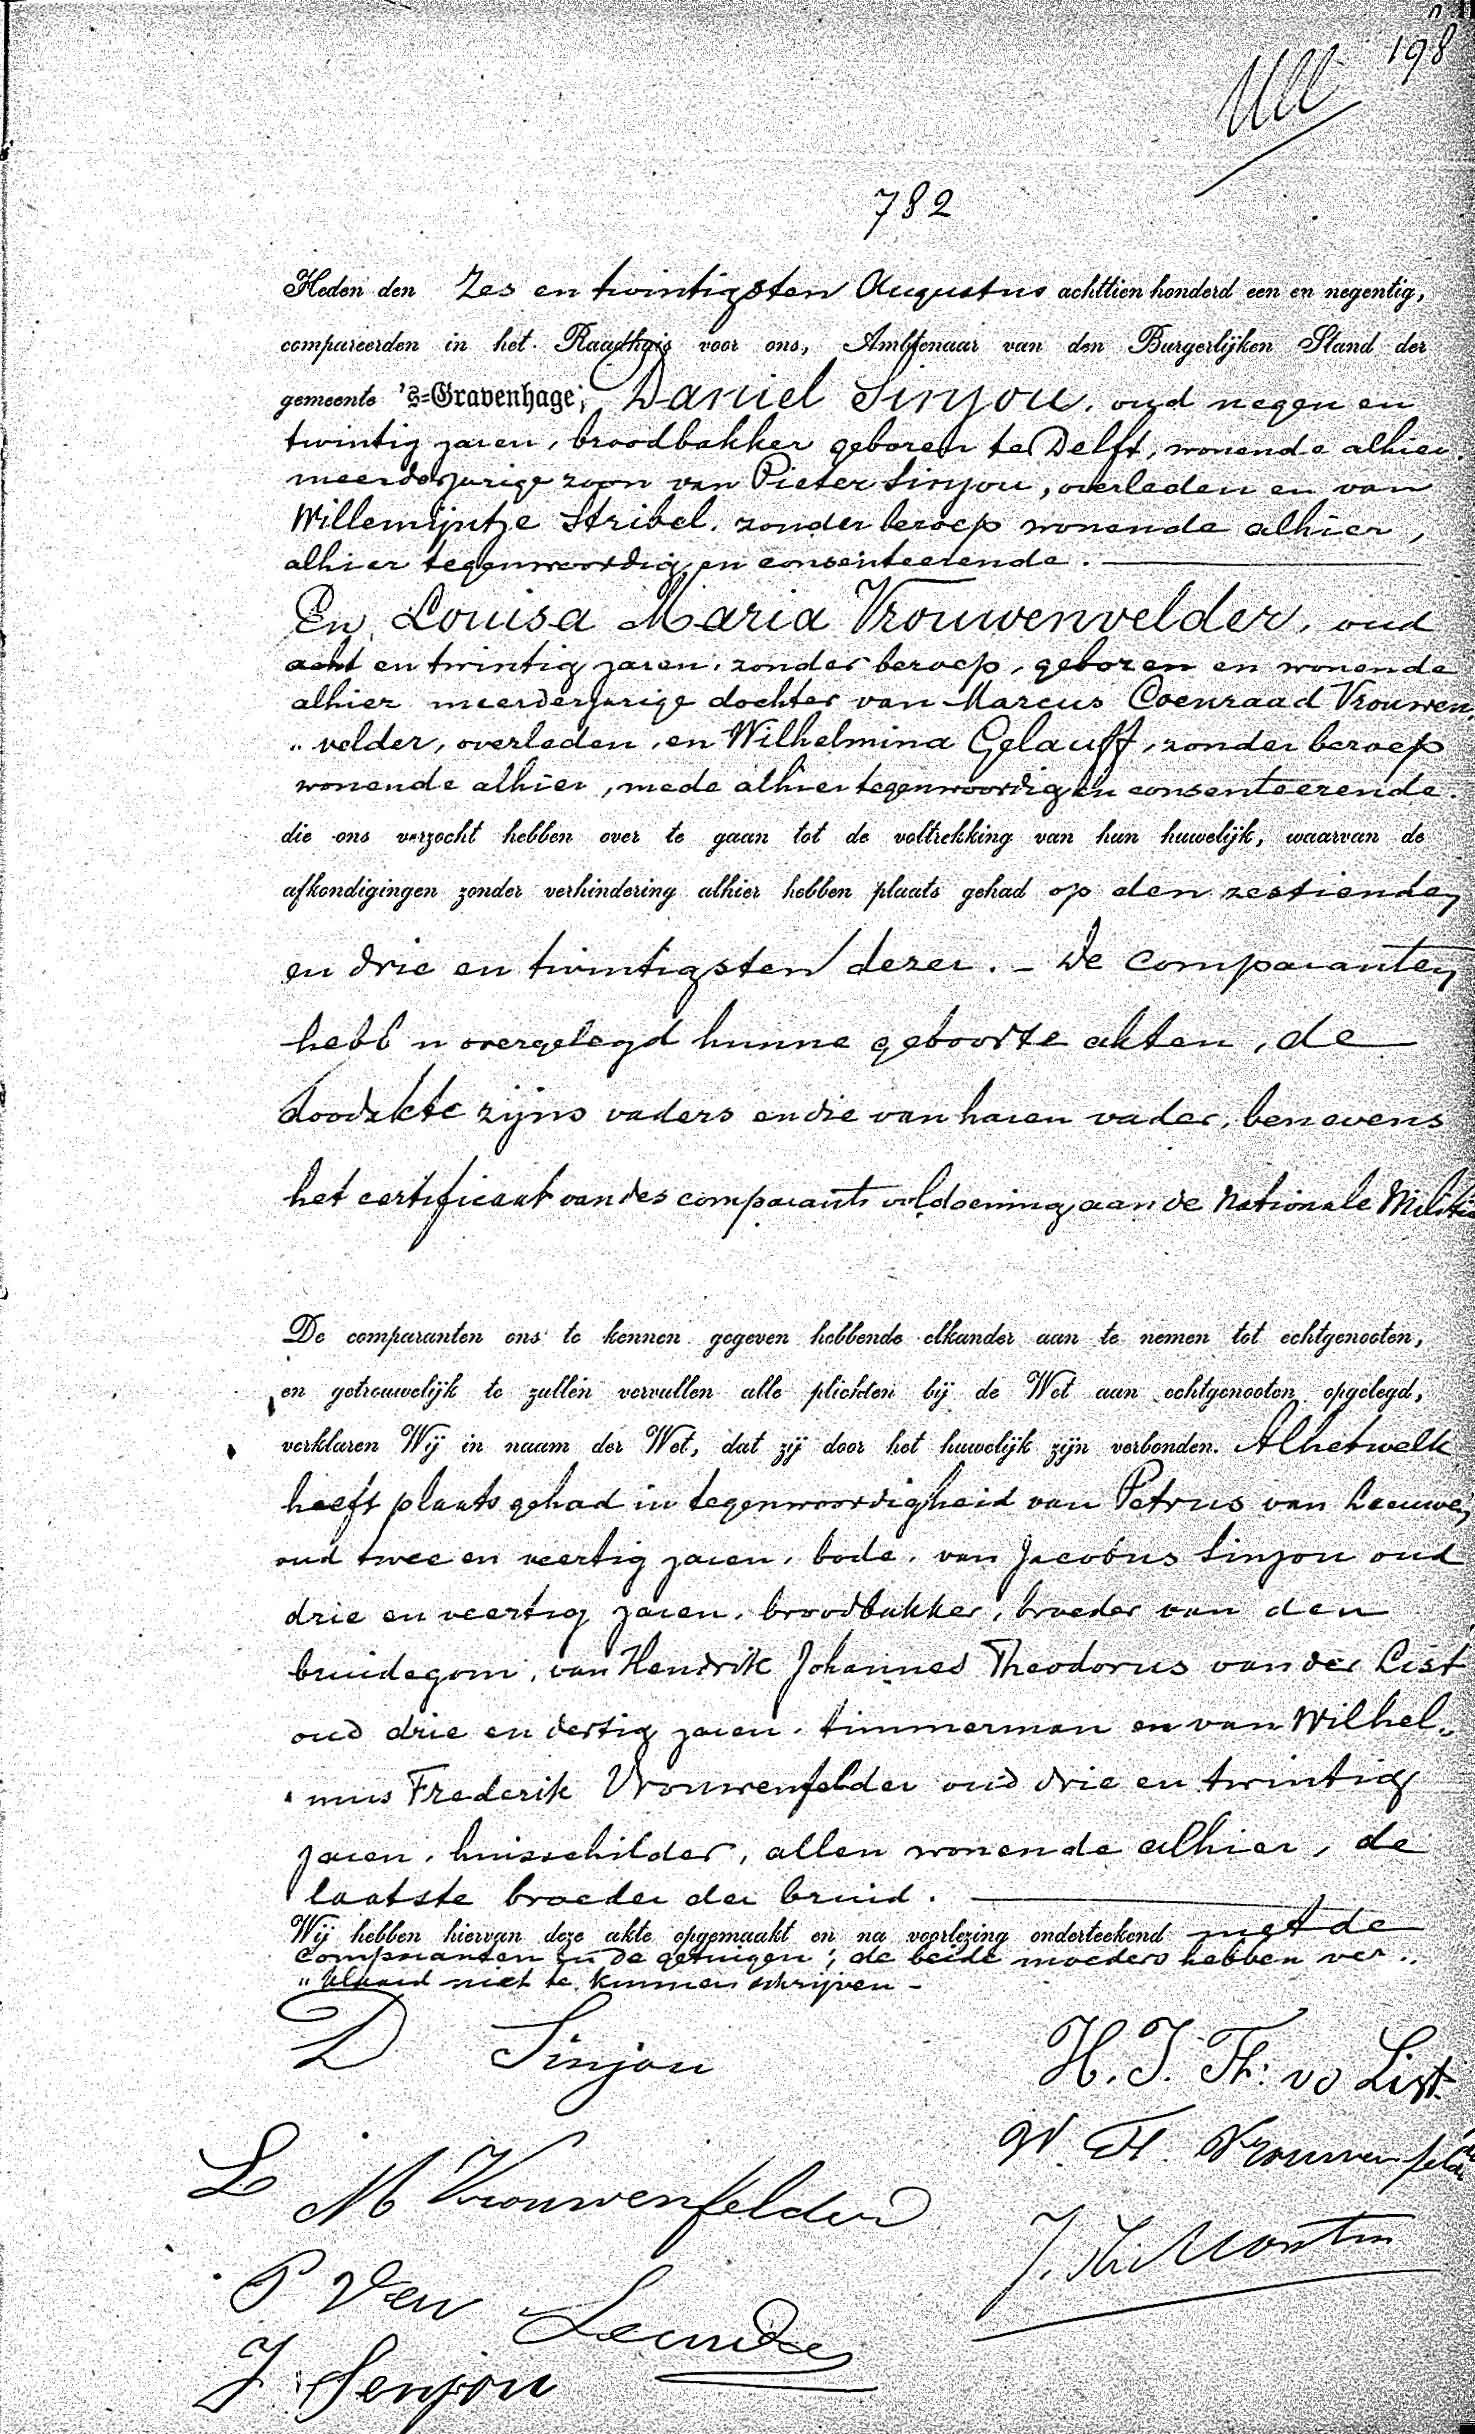 198
782
Heden den Zes en twintigsten Augustus achttien honderd een en negentig,
compareerden in het Raadhuis voor ons, Ambtenaar van den Burgerlijken Stand der
gemeente 's=Gravenhage; Daniel Sinjou, oud negen en
twintig jaren, broodbakker geboren te Delft, wonende alhier,
meerderjarige zoon van Pieter Sinjou, overleden en van
Willemijntje Stribel, zonder beroep wonende alhier,
alhier tegenwoordig en consenteerende.
En Louisa Maria Vrouwenvelder, oud
acht en twintig jaren, zonder beroep, geboren en wonende
alhier meerderjarige dochter van Marcus Coenraad Vrouwen
" velder, overleden, en Wilhelmina Gelauff, zonder beroep
wonende alhier, mede alhier tegenwoordig en consenteerende.
die ons verzocht hebben over te gaan tot de voltrekking van hun huwelijk, waarvan de
afkondigingen zonder verhindering alhier hebben plaats gehad op den zestienden
en drie en twintigsten dezer. – De comparanten
hebb n overgelegd hunne geboorte akten, de
doodakte zijns vaders en die van haren vader, benevens
het certificaat van des comparants voldoening aan de Nationale Militie
De comparanten ons te kennen gegeven hebbende elkander aan te nemen tot echtgenooten,
en getrouwelijk te zullen vervullen alle plichten bij de Wet aan echtgenooten opgelegd,
verklaren Wij in naam der Wet, dat zij door het huwelijk zijn verbonden. Alhetwelk
heeft plaats gehad in tegenwoordigheid van Petrus van Leeuwen
oud twee en veertig jaren, bode, van Jacobus Sinjou oud
drie en veertig jaren, broodbakker, broeder van den
bruidegom, van Hendrik Johannes Theodorus van der List
oud drie en dertig jaren, timmerman en van Wilhel„
„ mus Frederik Vrouwenfelder oud drie en twintig
jaren, huisschilder, allen wonende alhier, de
laatste broeder der bruid.
Wij hebben hiervan deze akte opgemaakt en na voorlezing onderteekend met de
comparanten en de getuigen; de beide moeders hebben ver„
„ klaard niet te kunnen schrijven –
D Sinjou
H. J. Th: vd List
L M Vrouwenfelder
W. F. Vrouwenfelder
P Van Leeuwen
J Senjou